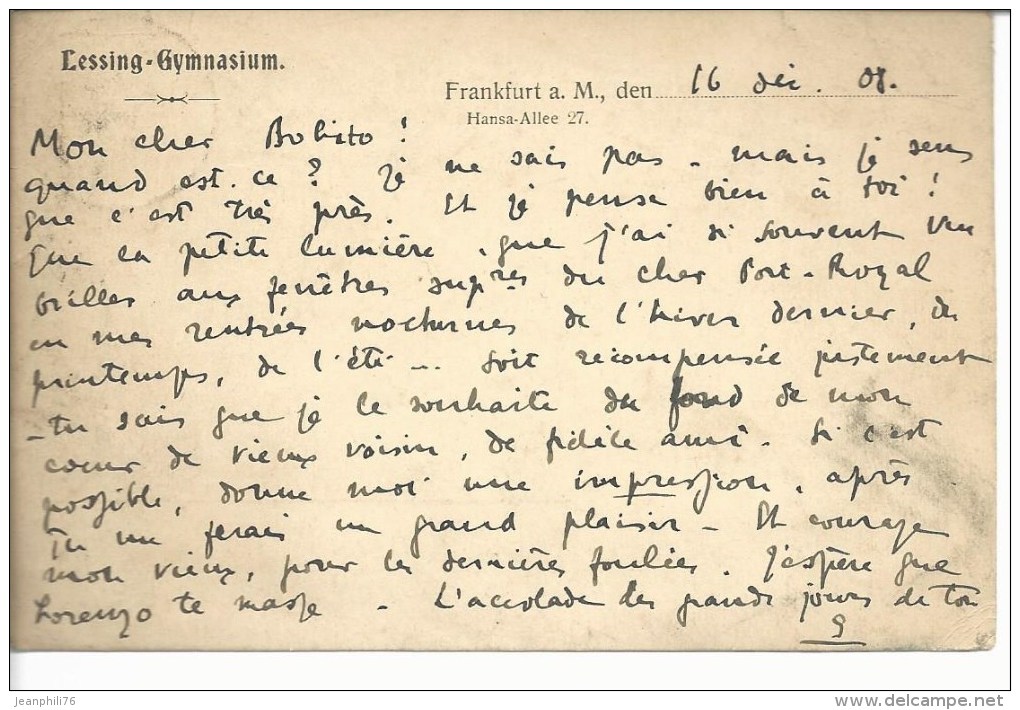 Lessing-Gymnasium.
Frankfurt a. M., den 16 déc. 08.
Hansa-Allee 27.
Mon cher Bobito !
quand est-ce ? Je ne sais pas - mais je sens
que c'est très près. Et je pense bien à toi !
Que la petite lumière, que j'ai si souvent vu
briller aux fenêtres supres du cher Port-Royal
en mes rentrées nocturnes de l'hiver dernier, du
printemps, de l'été ... soit récompensée justement
- tu sais que je le souhaite du fond de mon
coeur de vieux voisin, de fidèle ami. Si c'est
possible, donne moi une impression, après
Tu me ferais un grand plaisir - Et courage
mon vieux, pour les dernières foulées. J'espère que
Lorenzo te masse - L'accolade des grands jours de ton
G
jeanphili76
www.delcampe.net